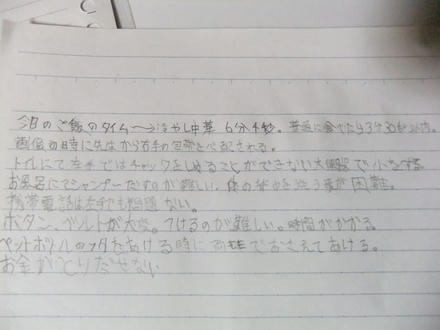 今日のご飯のタイム〜冷やし中華 6分4秒。普通に食べたら3分30秒
時に先生から右手の包帯を心配される。
トイレにて左手ではチャックをしめることができない大便器で小をする
お風呂にてシャンプーだすのが難しい。体の背中を洗う事が困難。
携帯電話は左手でも問題ない。
ボタン、ベルトが大変。つけるのが難しい。時間がかかる
ペットボトルのフタをあける時に両ヒザでおさえてあける。
お金がとりだせない